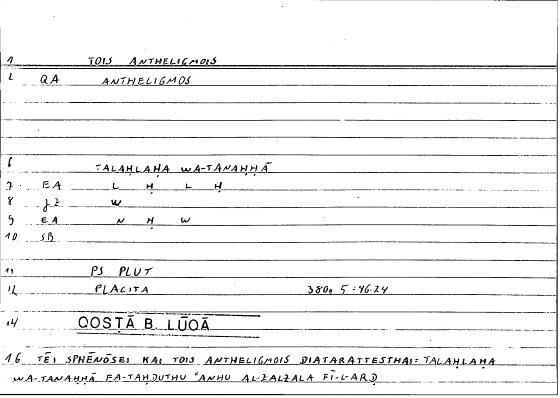 1 TOIS ANTHELIGMOIS
2 QA ANTHELIGMOS
6 TALAḤLAḤA WA-TANAḤḤĀ
7 EA L Ḥ L Ḥ
8 JZ W
9 EA N Ḥ W
10 SB
11 PS PLUT
12 PLACITA 380a 5 = 46.24
14 QOSṬĀ B. LŪQĀ
16 TĒI SPHĒNŌSEI KAI TOIS ANTHELIGMOIS DIATARATTESTHAI = TALAḤLAḤA
WA-TANAḤḤĀ FA-TAḤDUTHU ʿANHU AL-ZALZALA FĪ-L-ARḌ